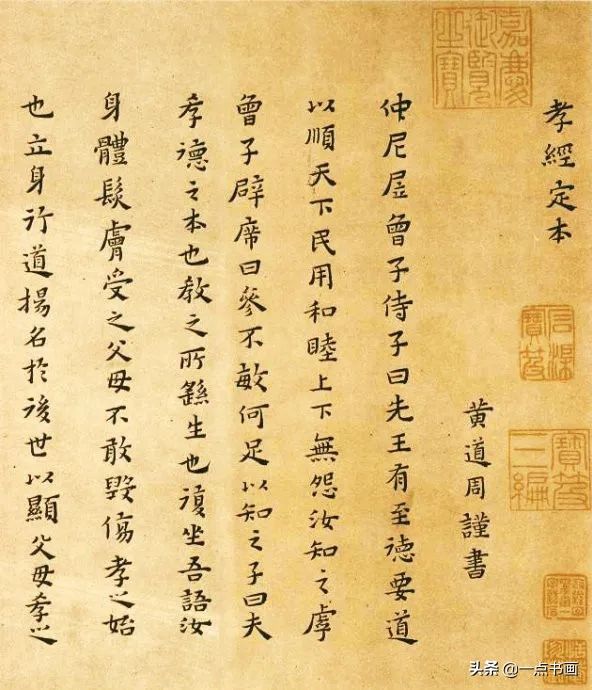 嘉慶御覽之寶
孝經定本
石渠寶笈
寶笈三編
黄道周謹書
仲尼居曾子侍子曰先王有至徳要道
以順天下民用和睦上下無怨汝知之虖
曾子辟席曰參不敏何足以知之子曰夫
孝德之本也教之所繇生也復坐吾語汝
身體髮膚受之父母不敢毀傷孝之始
也立身行道揚名於後世以顯父母孝之
头条 @一点书画